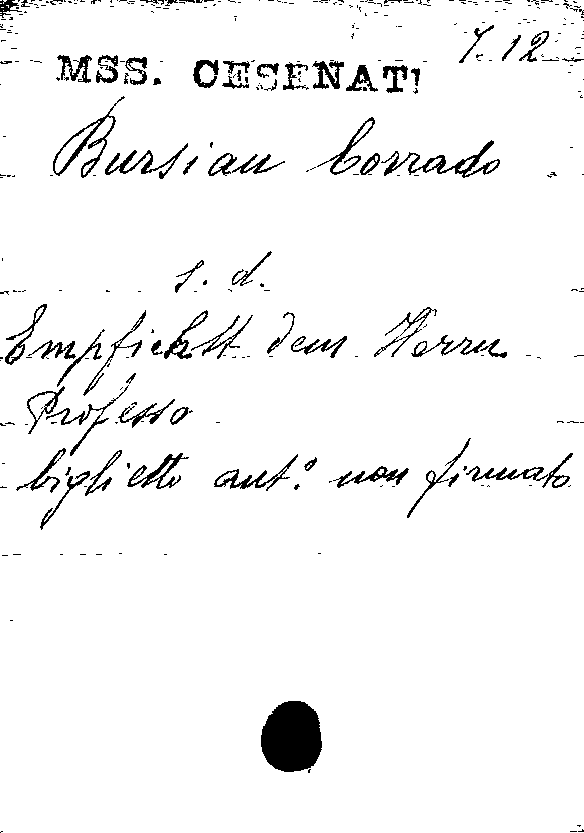 7.12
MSS. CESENATI
Bursian Corrado
s. d.
Empfiehltt dem Herrn
Professo
biglietto aut.º non firmato